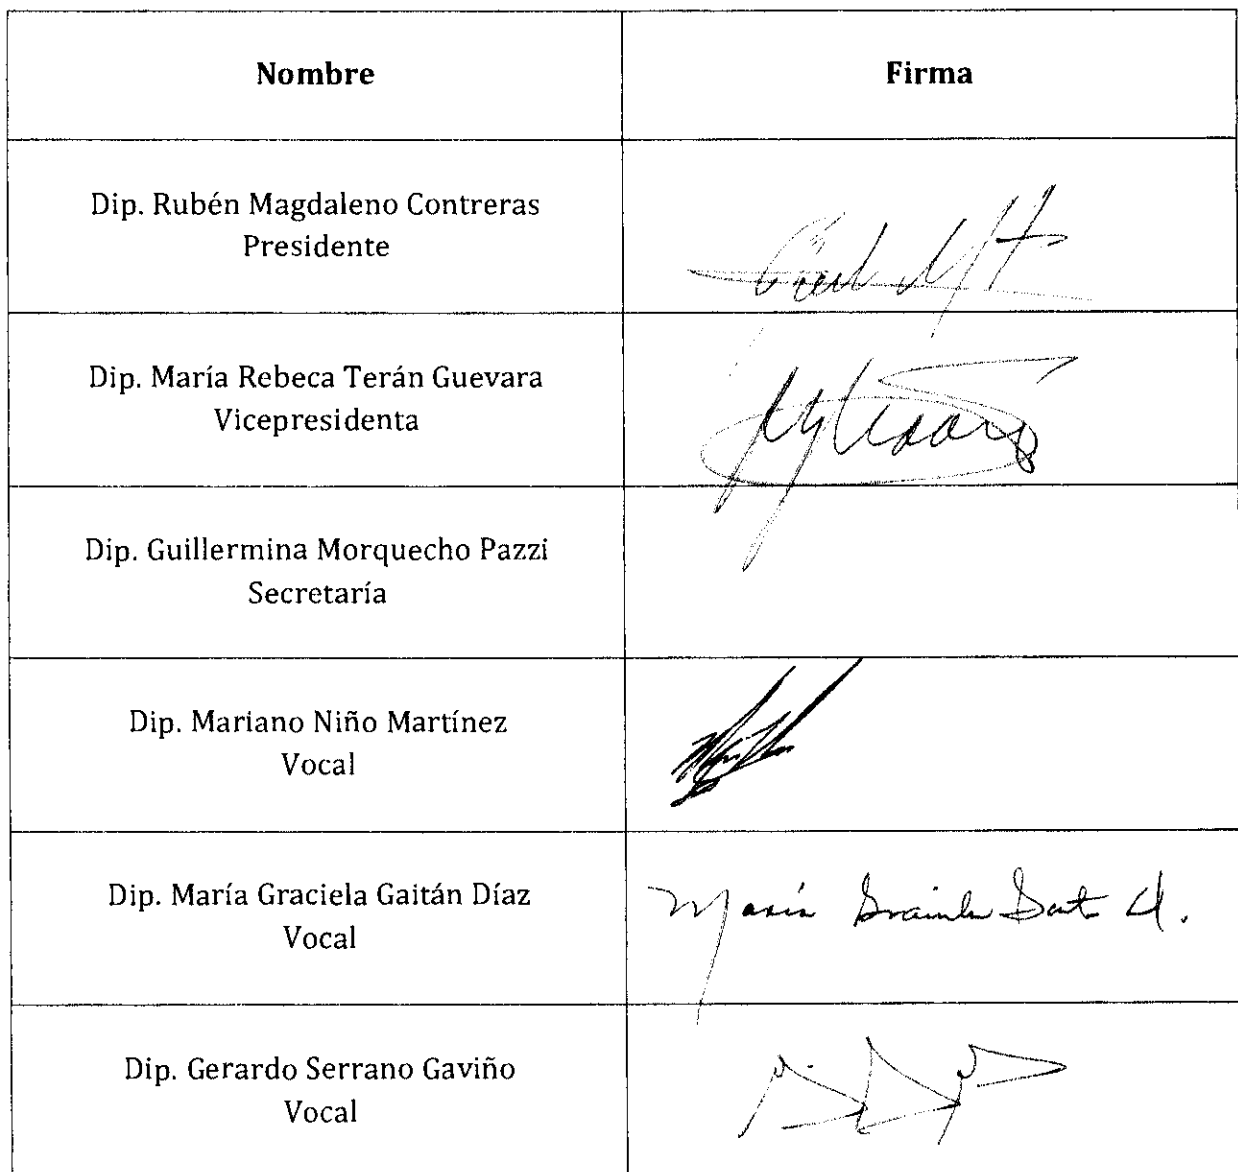 Nombre
Firma
Dip. Rubén Magdaleno Contreras
Presidente
Dip. María Rebeca Terán Guevara
Vicepresidenta
Dip. Guillermina Morquecho Pazzi
Secretaría
Dip. Mariano Niño Martínez
Vocal
Dip. María Graciela Gaitán Díaz
Vocal
María
Dip. Gerardo Serrano Gaviño
Vocal